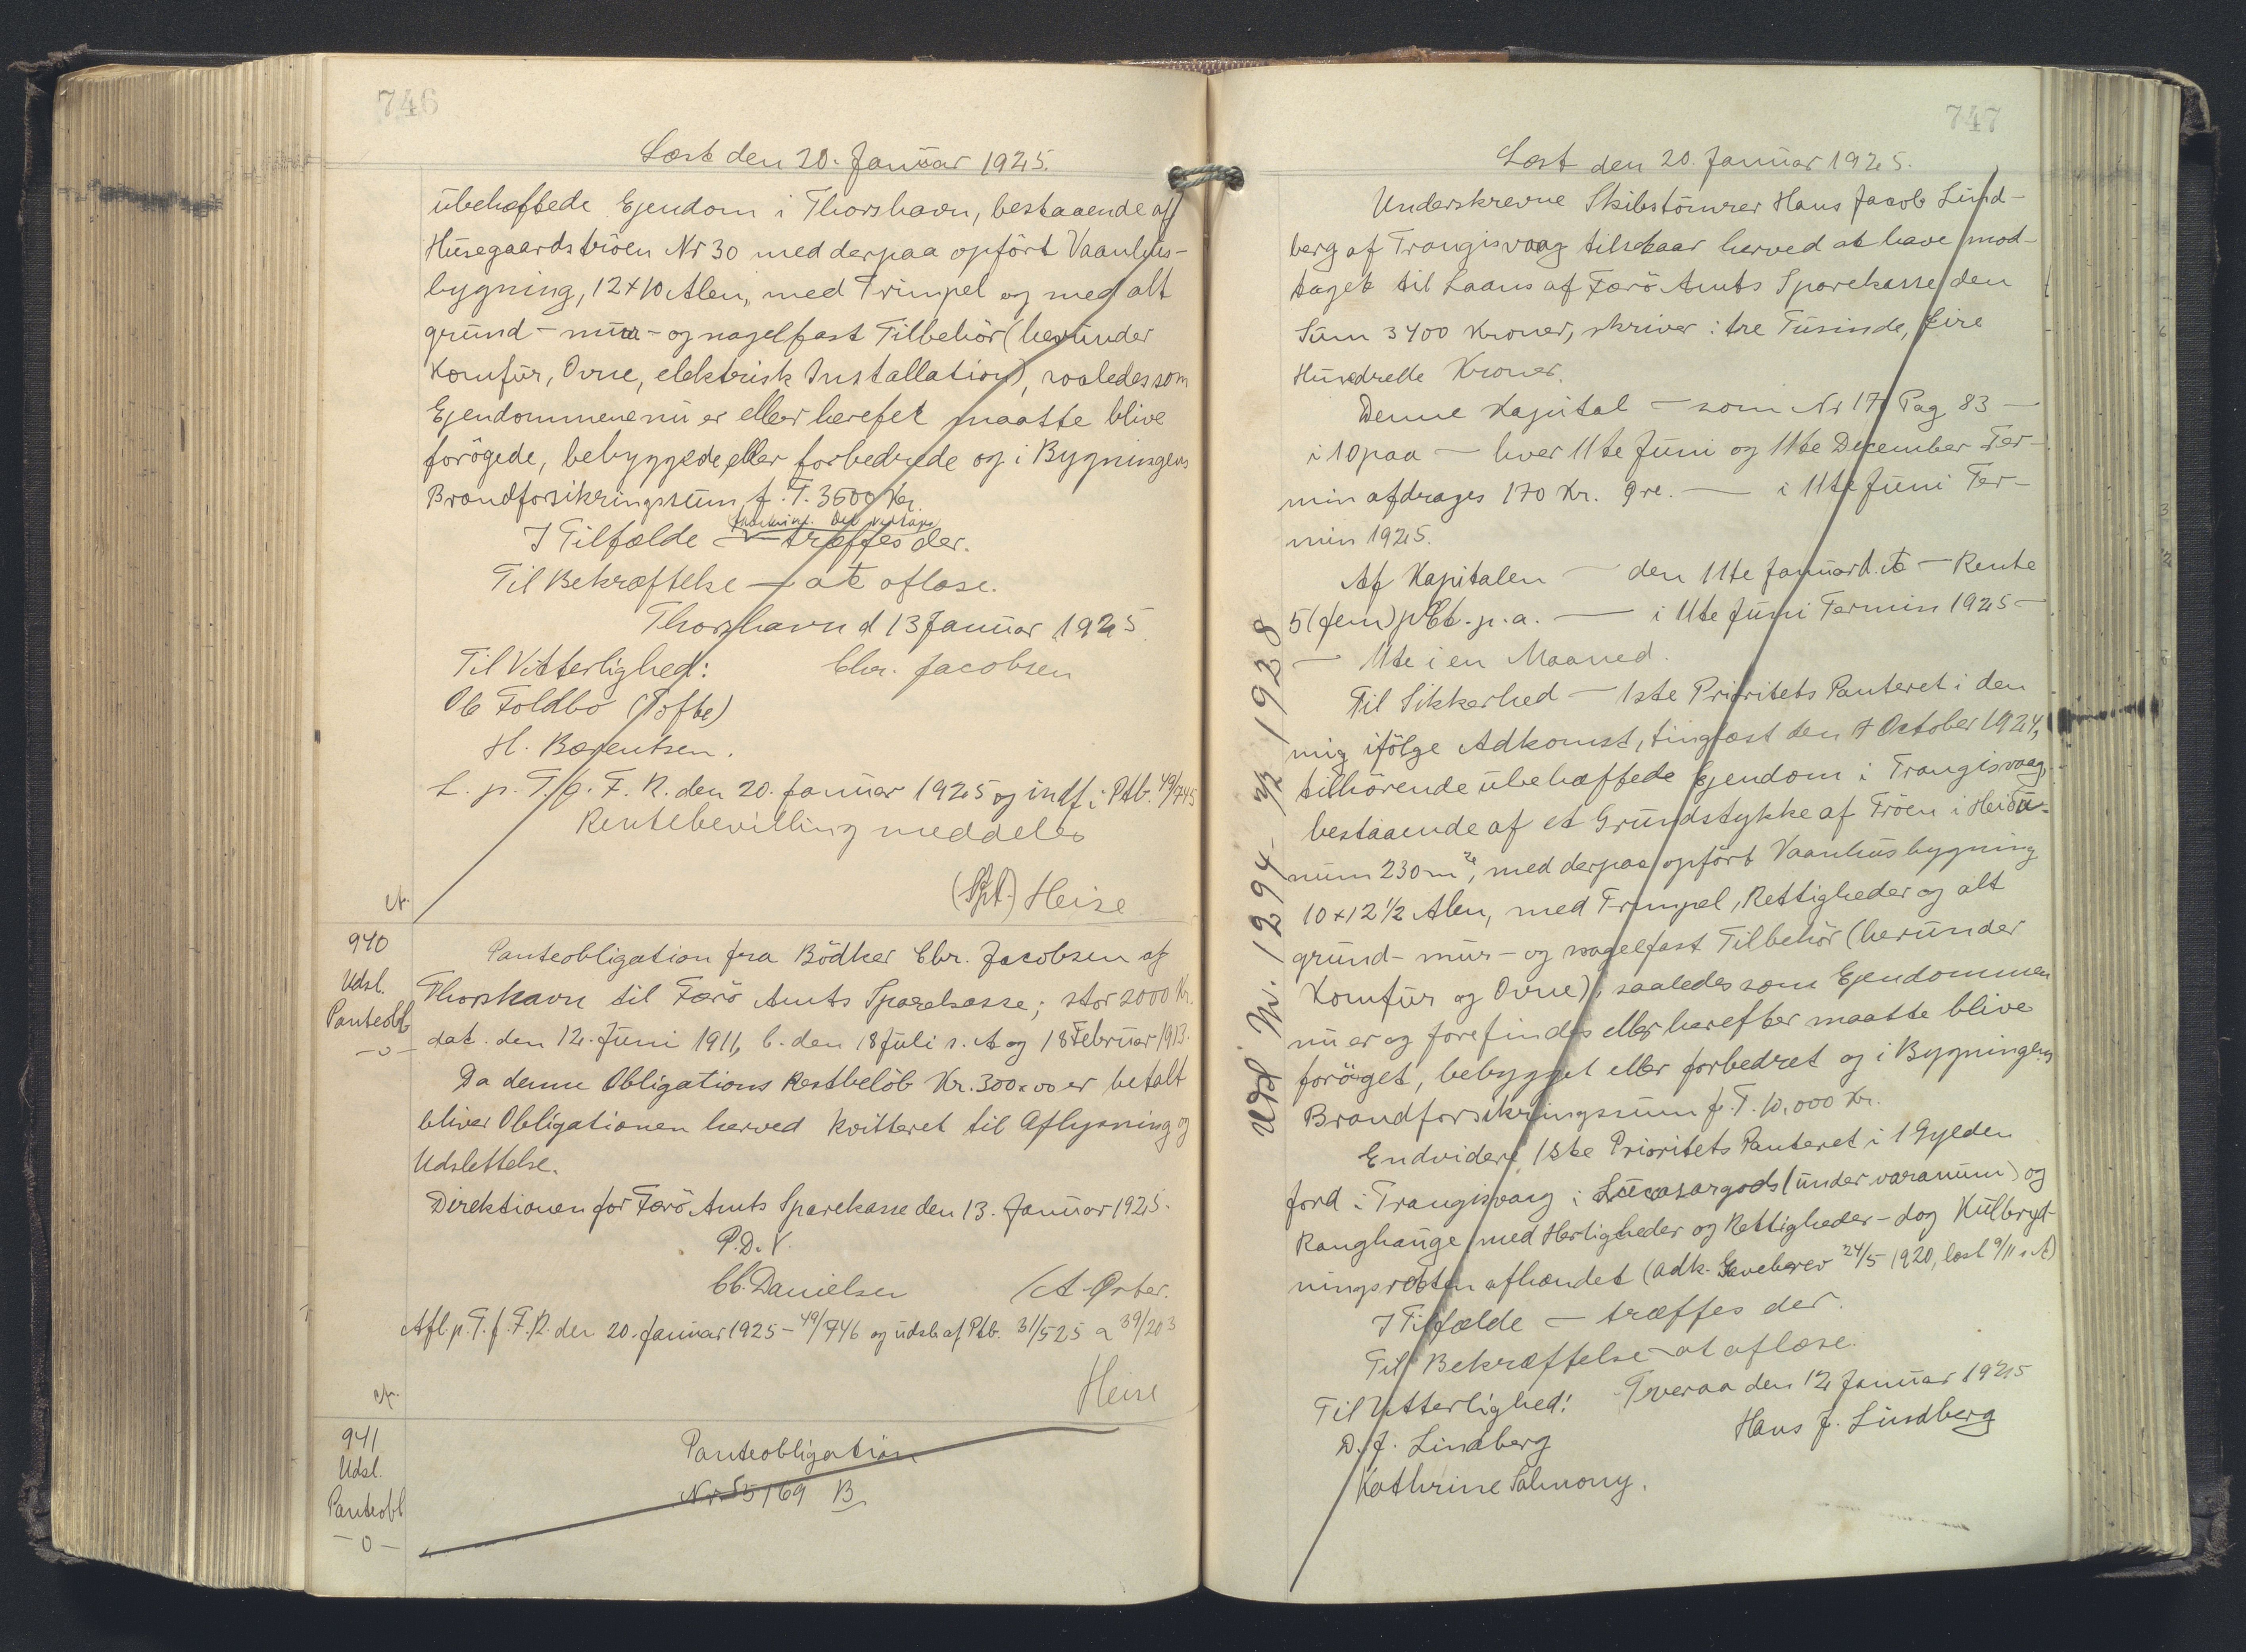 746
Læst den 20. Januar 1925.
ubehæftede Ejendom i Thorshavn, bestaaende af
Husegaardströen Nr 30 med derpaa opfört Vaanhus-
bygning, 12 x 10 Alen, med Trimpel og med alt
grund- mur- og nagelfast Tilbehör (herunder
Komfur, Ovne, elektrisk Installation), saaledes som
Ejendommene nu er eller herefter maatte blive
forögede, bebyggede eller forbedrede og i Bygningens
Brandforsikringssum f. T. 3600 Kr.
I Tilfælde — træffes der.
Til Bekræftelse — at aflæse.
Thorshavn d 13 Januar 1925
Til Vitterlighed: Chr. Jacobsen
Ole Foldbo (Tofte)
H. Bærentsen.
L. p. T. f. F. R. den 20. Januar 1925 og indf. i Ptb. 49/745
Rentebevilling meddeles
(Spt.) Heise
A.
940
Udsl.
Panteobl
-o-
Panteobligation fra Bödker Chr. Jacobsen af
Thorshavn til Færö Amts Sparekasse; stor 2000 Kr.
dat. den 12. Juni 1911, l. den 18 Juli s. A og 18 Februar 1913.
Da denne Obligations Restbelöb Kr. 300.00 er betalt
bliver Obligationen herved kvitteret til Aflysning og
Udslettelse.
Direktionen for Færö Amts Sparekasse den 13. Januar 1925.
P.D.V.
Chr. Danielsen /A. Öster.
Afl. p. T. f. F. R. den 20. Januar 1925 - 49/746 og udsl. af Ptb. 31/525 a 39/203
Heise
A.
941
Udsl.
Panteobl
-o-
Panteobligation
Nr 55169 B
747
Læst den 20. Januar 1925.
Underskrevne Skibstömrer Hans Jacob Lind-
berg af Trangisvaag tilstaar herved at have mod-
taget til Laans af Færö Amts Sparekasse den
Sum 3400 Kroner, skriver: tre Tusinde, fire
Hundrede Kroner.
Denne Kapital — som Nr 17 Pag 83 —
i 10 paa — hver 11te Juni og 11te December Ter-
min afdrages 170 Kr. Øre. — i 11te Juni Ter-
min 1925.
Af Kapitalen — den 11te Januar d. A — Rente
5 (fem) pCt. p. a. — i 11te Juni Termin 1925 —
— 11te i en Maaned.
Til Sikkerhed — 1ste Prioritets Panteret i den
mig ifölge Adkomst, tinglæst den 7 October 1924,
tilhörende ubehæftede Ejendom i Trangisvaag,
bestaaende af et Grundstykke af Tröen i Heidu-
num 230 m2, med derpaa opfört Vaanhusbygning
10 x 12 1/2 Alen, med Trimpel, Rettigheder og alt
grund- mur- og nagelfast Tilbehör (herunder
Komfur og Ovne), saaledes som Ejendommen
nu er og forefindes eller herefter maatte blive
foröget, bebygget eller forbedret og i Bygningens
Brandforsikringssum f. T. 10,000 Kr.
Endvidere 1ste Prioritets Panteret i 1 Gylden
jord i Trangisvaag i Lucasargods (under varanum) og
Ranghauge med Herligheder og Rettigheder - dog Kulbryd-
ningsretten afhændet (adk. Gavebrev 24/5 1920, læst 9/11 s. A)
I Tilfælde — træffes der.
Til Bekræftelse — at aflæse.
Tveraa den 12 Januar 1925
Til Vitterlighed: Hans J. Lindberg
D. J. Lindberg
Kathrine Salmony.
Udsl Nr. 1294 - 3/2 1938